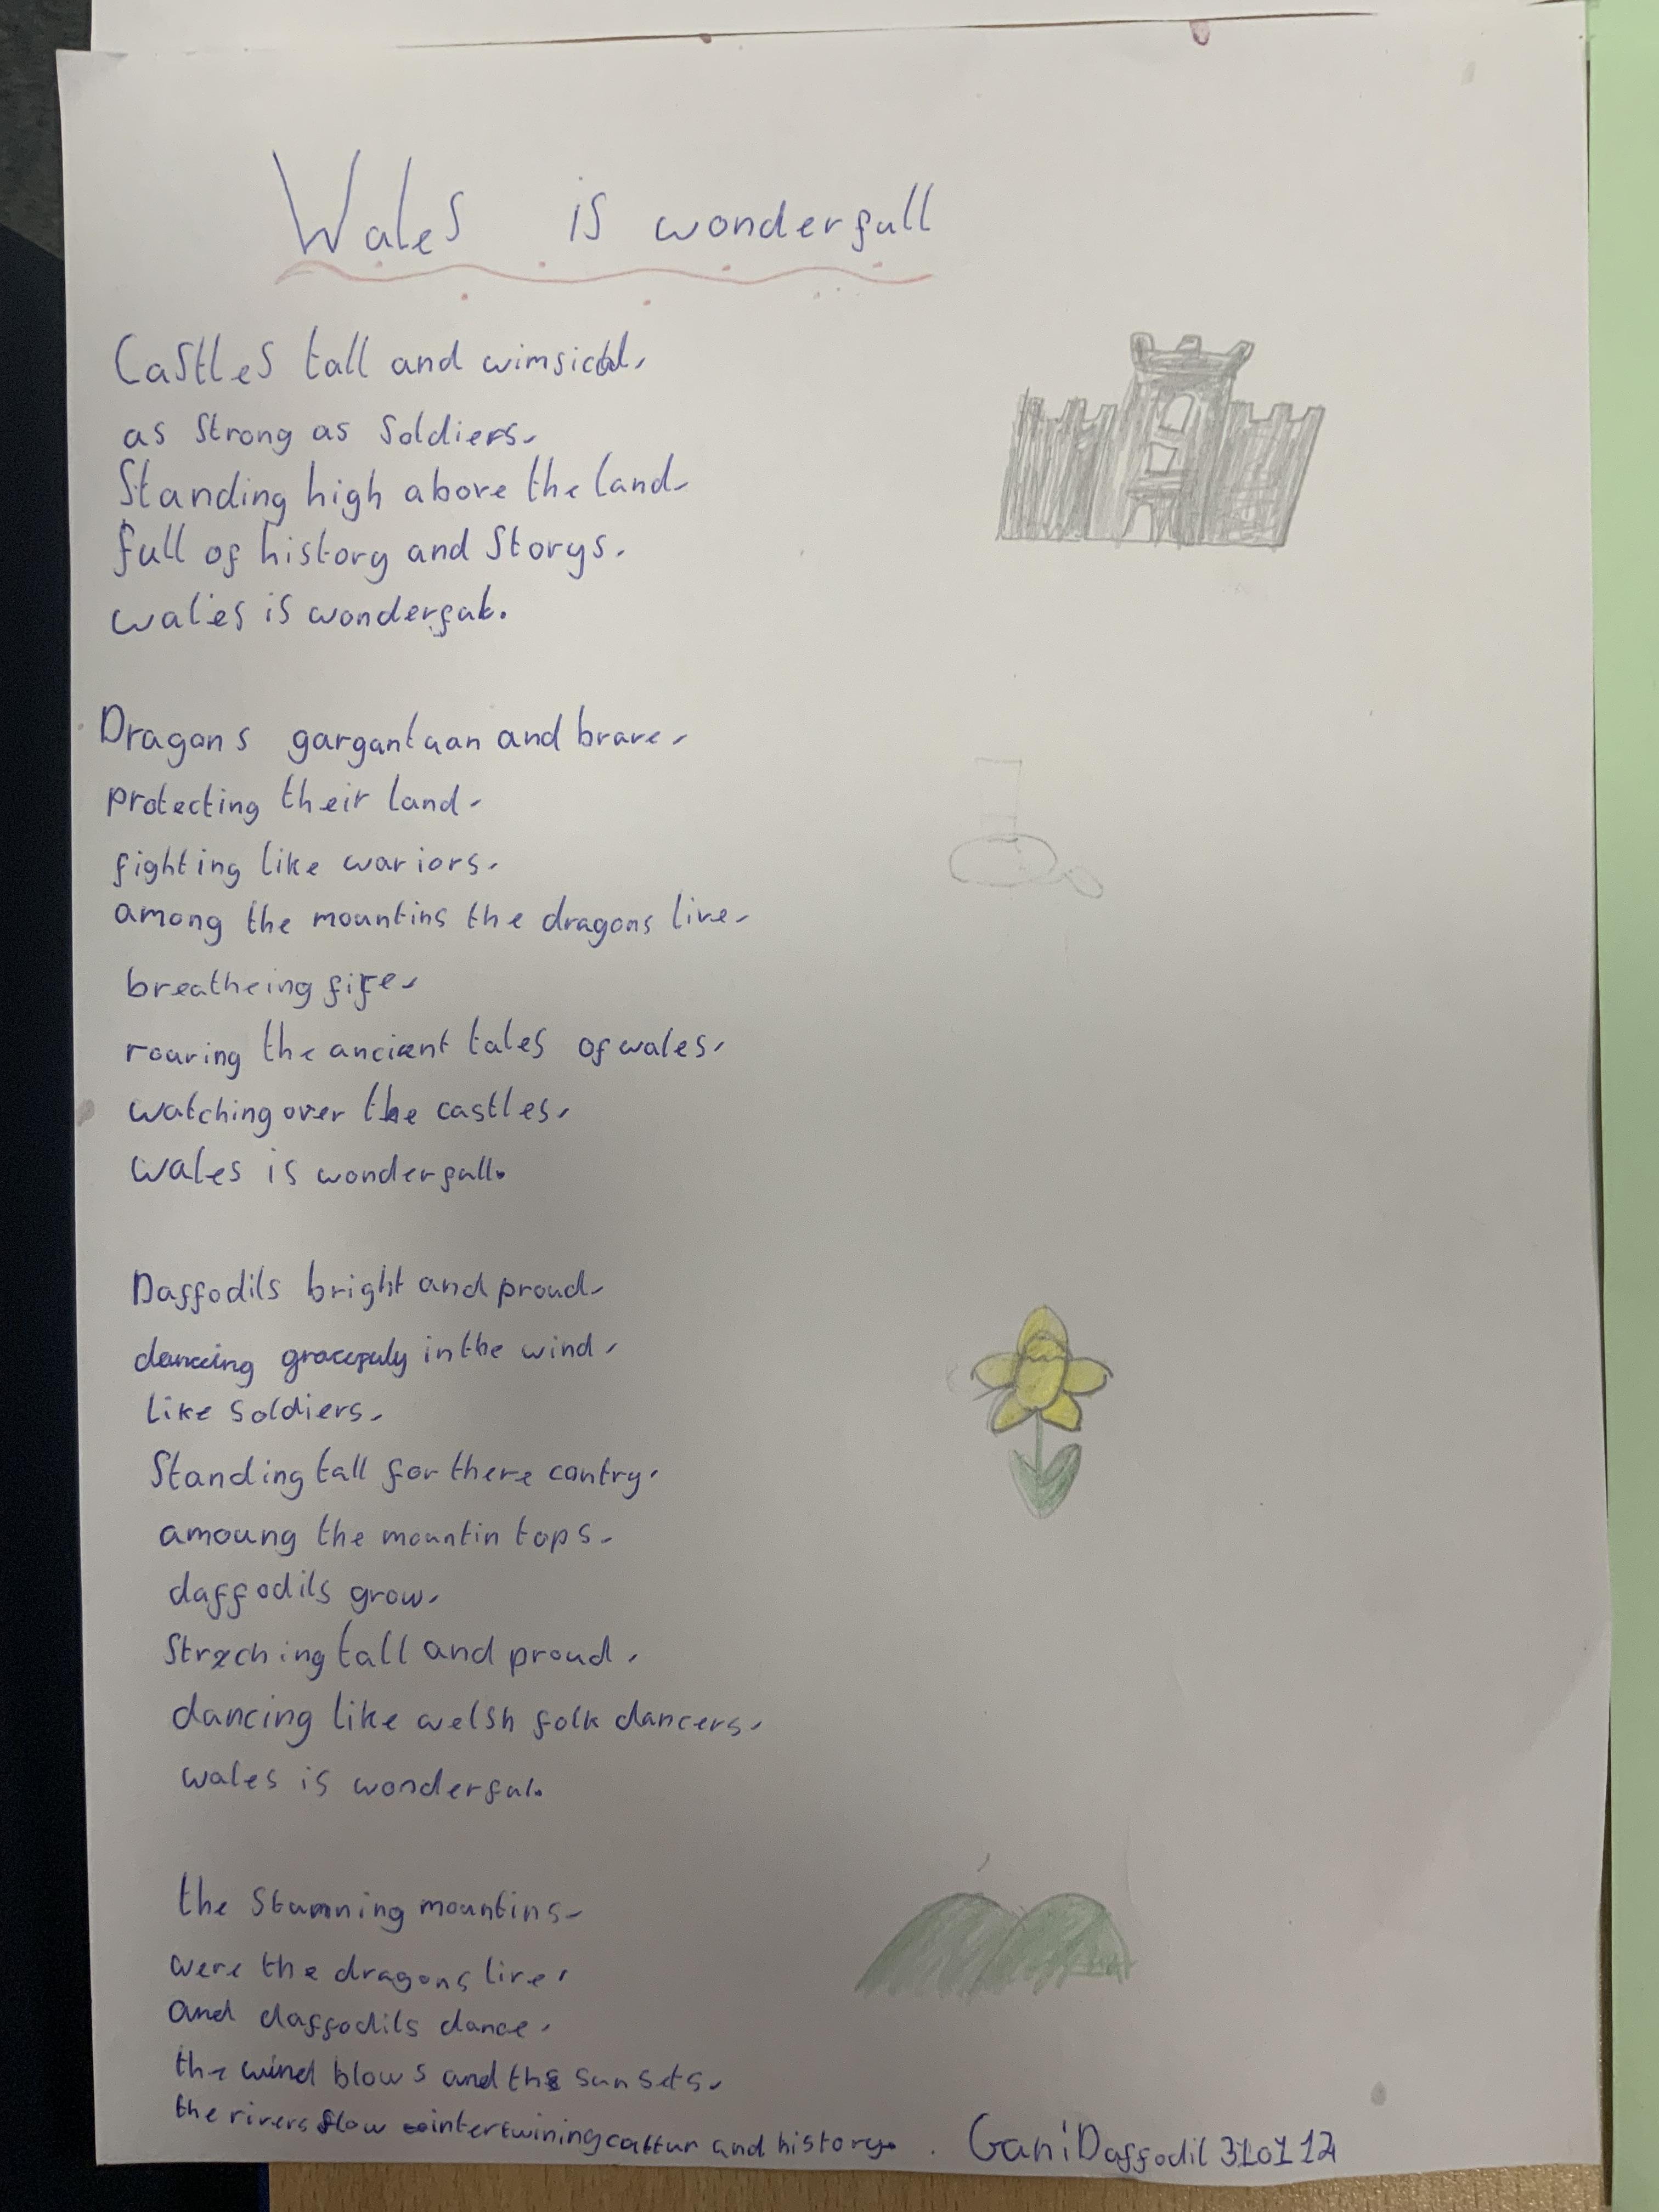 Wales is wonderfull
Castles tall and wimsical,
as strong as Soldiers,
Standing high above the land,
full of history and Storys,
wales is wonderful.
Dragons gargantuan and brave,
protecting their land,
fighting like wariors,
among the mountins the dragons live,
breatheing fire,
roaring the ancient tales of wales,
watching over the castles,
wales is wonderfull.
Daffodils bright and proud,
dancing gracefuly in the wind,
like soldiers,
Standing tall for there contry,
amoung the mountin tops,
daffodils grow,
Streching tall and proud,
dancing like welsh folk dancers,
wales is wonderful.
the Stunning mountins,
were the dragons live,
and daffodils dance,
the wind blows and the sun sets,
the rivers flow intertwining and history.
Gani Daffodil